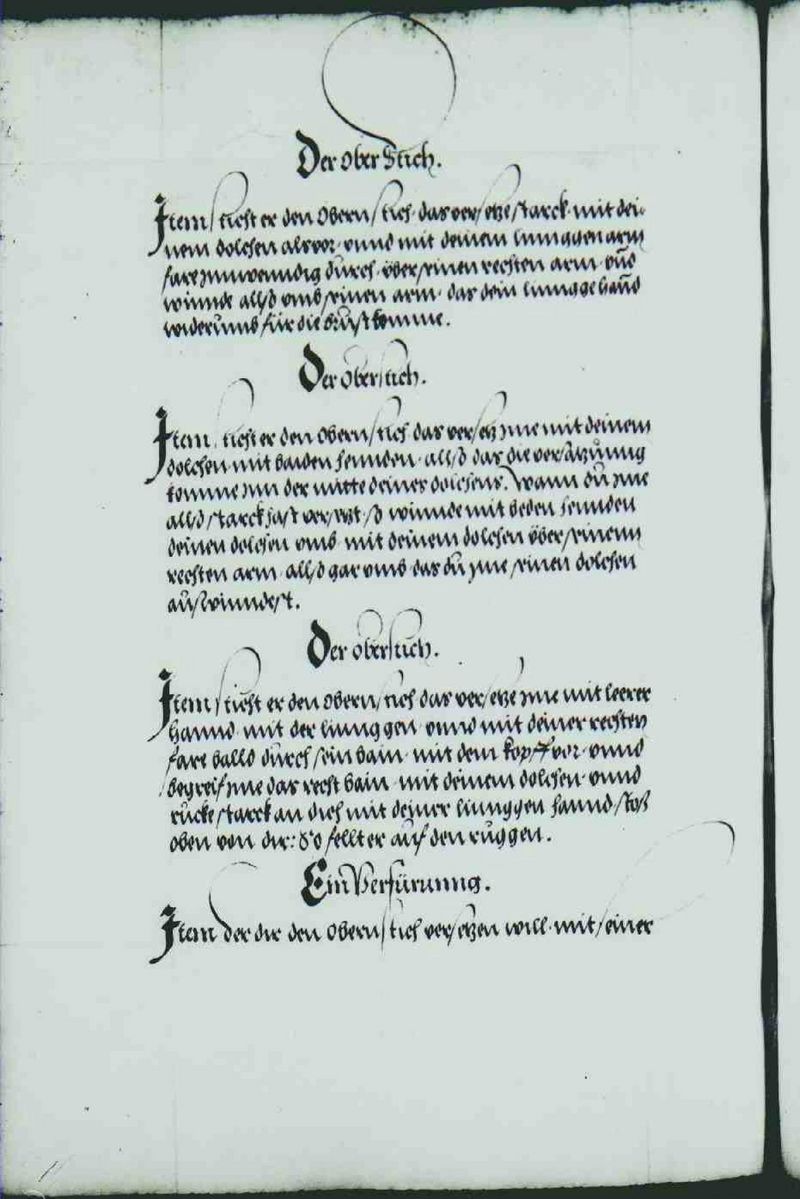 Der ober Stich.
Item sticht er den Obern stich das verseze starck mit dei-
nem dolchen als vor vnnd mit deinem linnggen arm
fare Innwenndig durch vber seinen rechten arm vnd
winnde allso vmb seinen arm das dein linngge hannd
widerumb für die brust komme.
Der oberstich.
Item sticht er den Obern stich das versez Ime mit deinem
dolchen mit baiden hennden allso das die versatzunng
komme Inn der mitte deines dolchens. Wann du Ime
allso starck hast versezt so winnde mit beden hennden
deinen dolchen vmb mit deinem dolchen vber seinenn
rechten arm allso gar vmb das du Ime seinen dolchen
auswinndest.
Der oberstich.
Item sticht er den obern stich das verseze Ime mit leerer
hannd mit der linnggen vnnd mit deiner rechten
fare balld durch sein bain mit dem kopff vor vnnd
begreif Ime das recht bain mit deinem dolchen vnnd
rucke starck an dich mit deiner linnggen hannd stos
oben von dir: So fellt er auf den ruggen.
Ein Verfürunng.
Item der dir den obern stich versezen will mit seiner